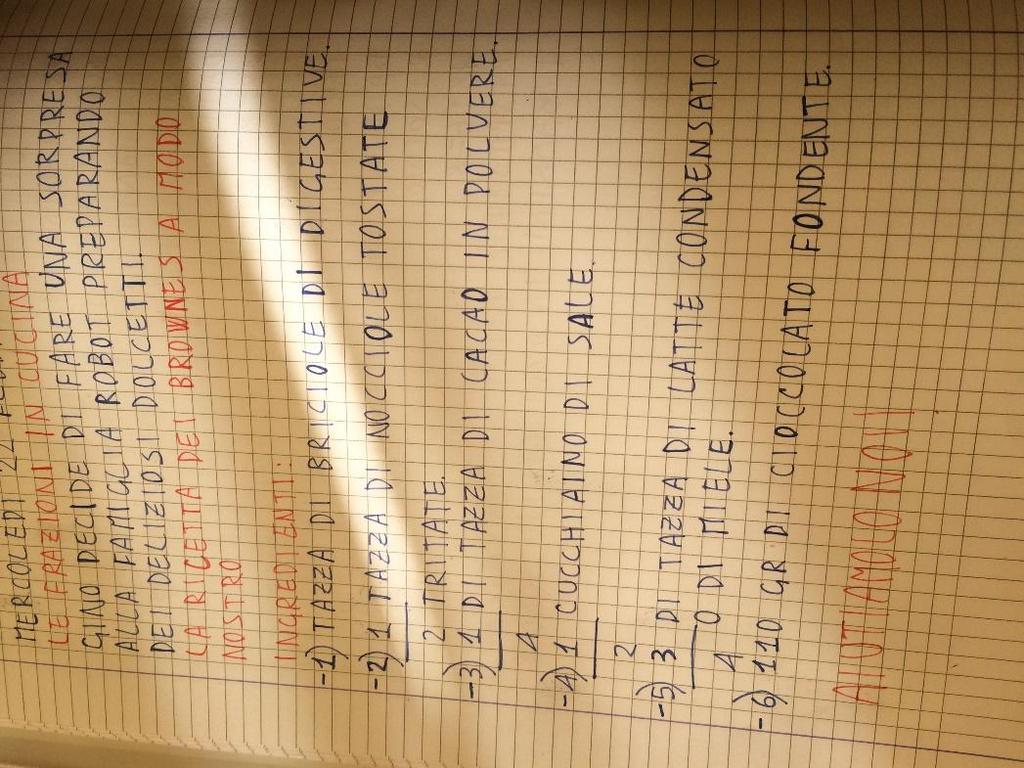 MERCOLEDÌ 22
LE FRAZIONI IN CUCINA
GINO DECIDE DI FARE UNA SORPRESA
ALLA FAMIGLIA ROBOT PREPARANDO
DEI DELIZIOSI DOLCETTI.
LA RICETTA DEI BROWNES A MODO
NOSTRO
INGREDIENTI:
-1) TAZZA DI BRICIOLE DI DIGESTIVE.
-2) 1 TAZZA DI NOCCIOLE TOSTATE
2 TRITATE.
-3) 1 DI TAZZA DI CACAO IN POLVERE.
4
-4) 1 CUCCHIAINO DI SALE.
2
-5) 3 DI TAZZA DI LATTE CONDENSATO
4 O DI MIELE.
-6) 110 GR DI CIOCCOLATO FONDENTE.
AIUTIAMOLO NOI!